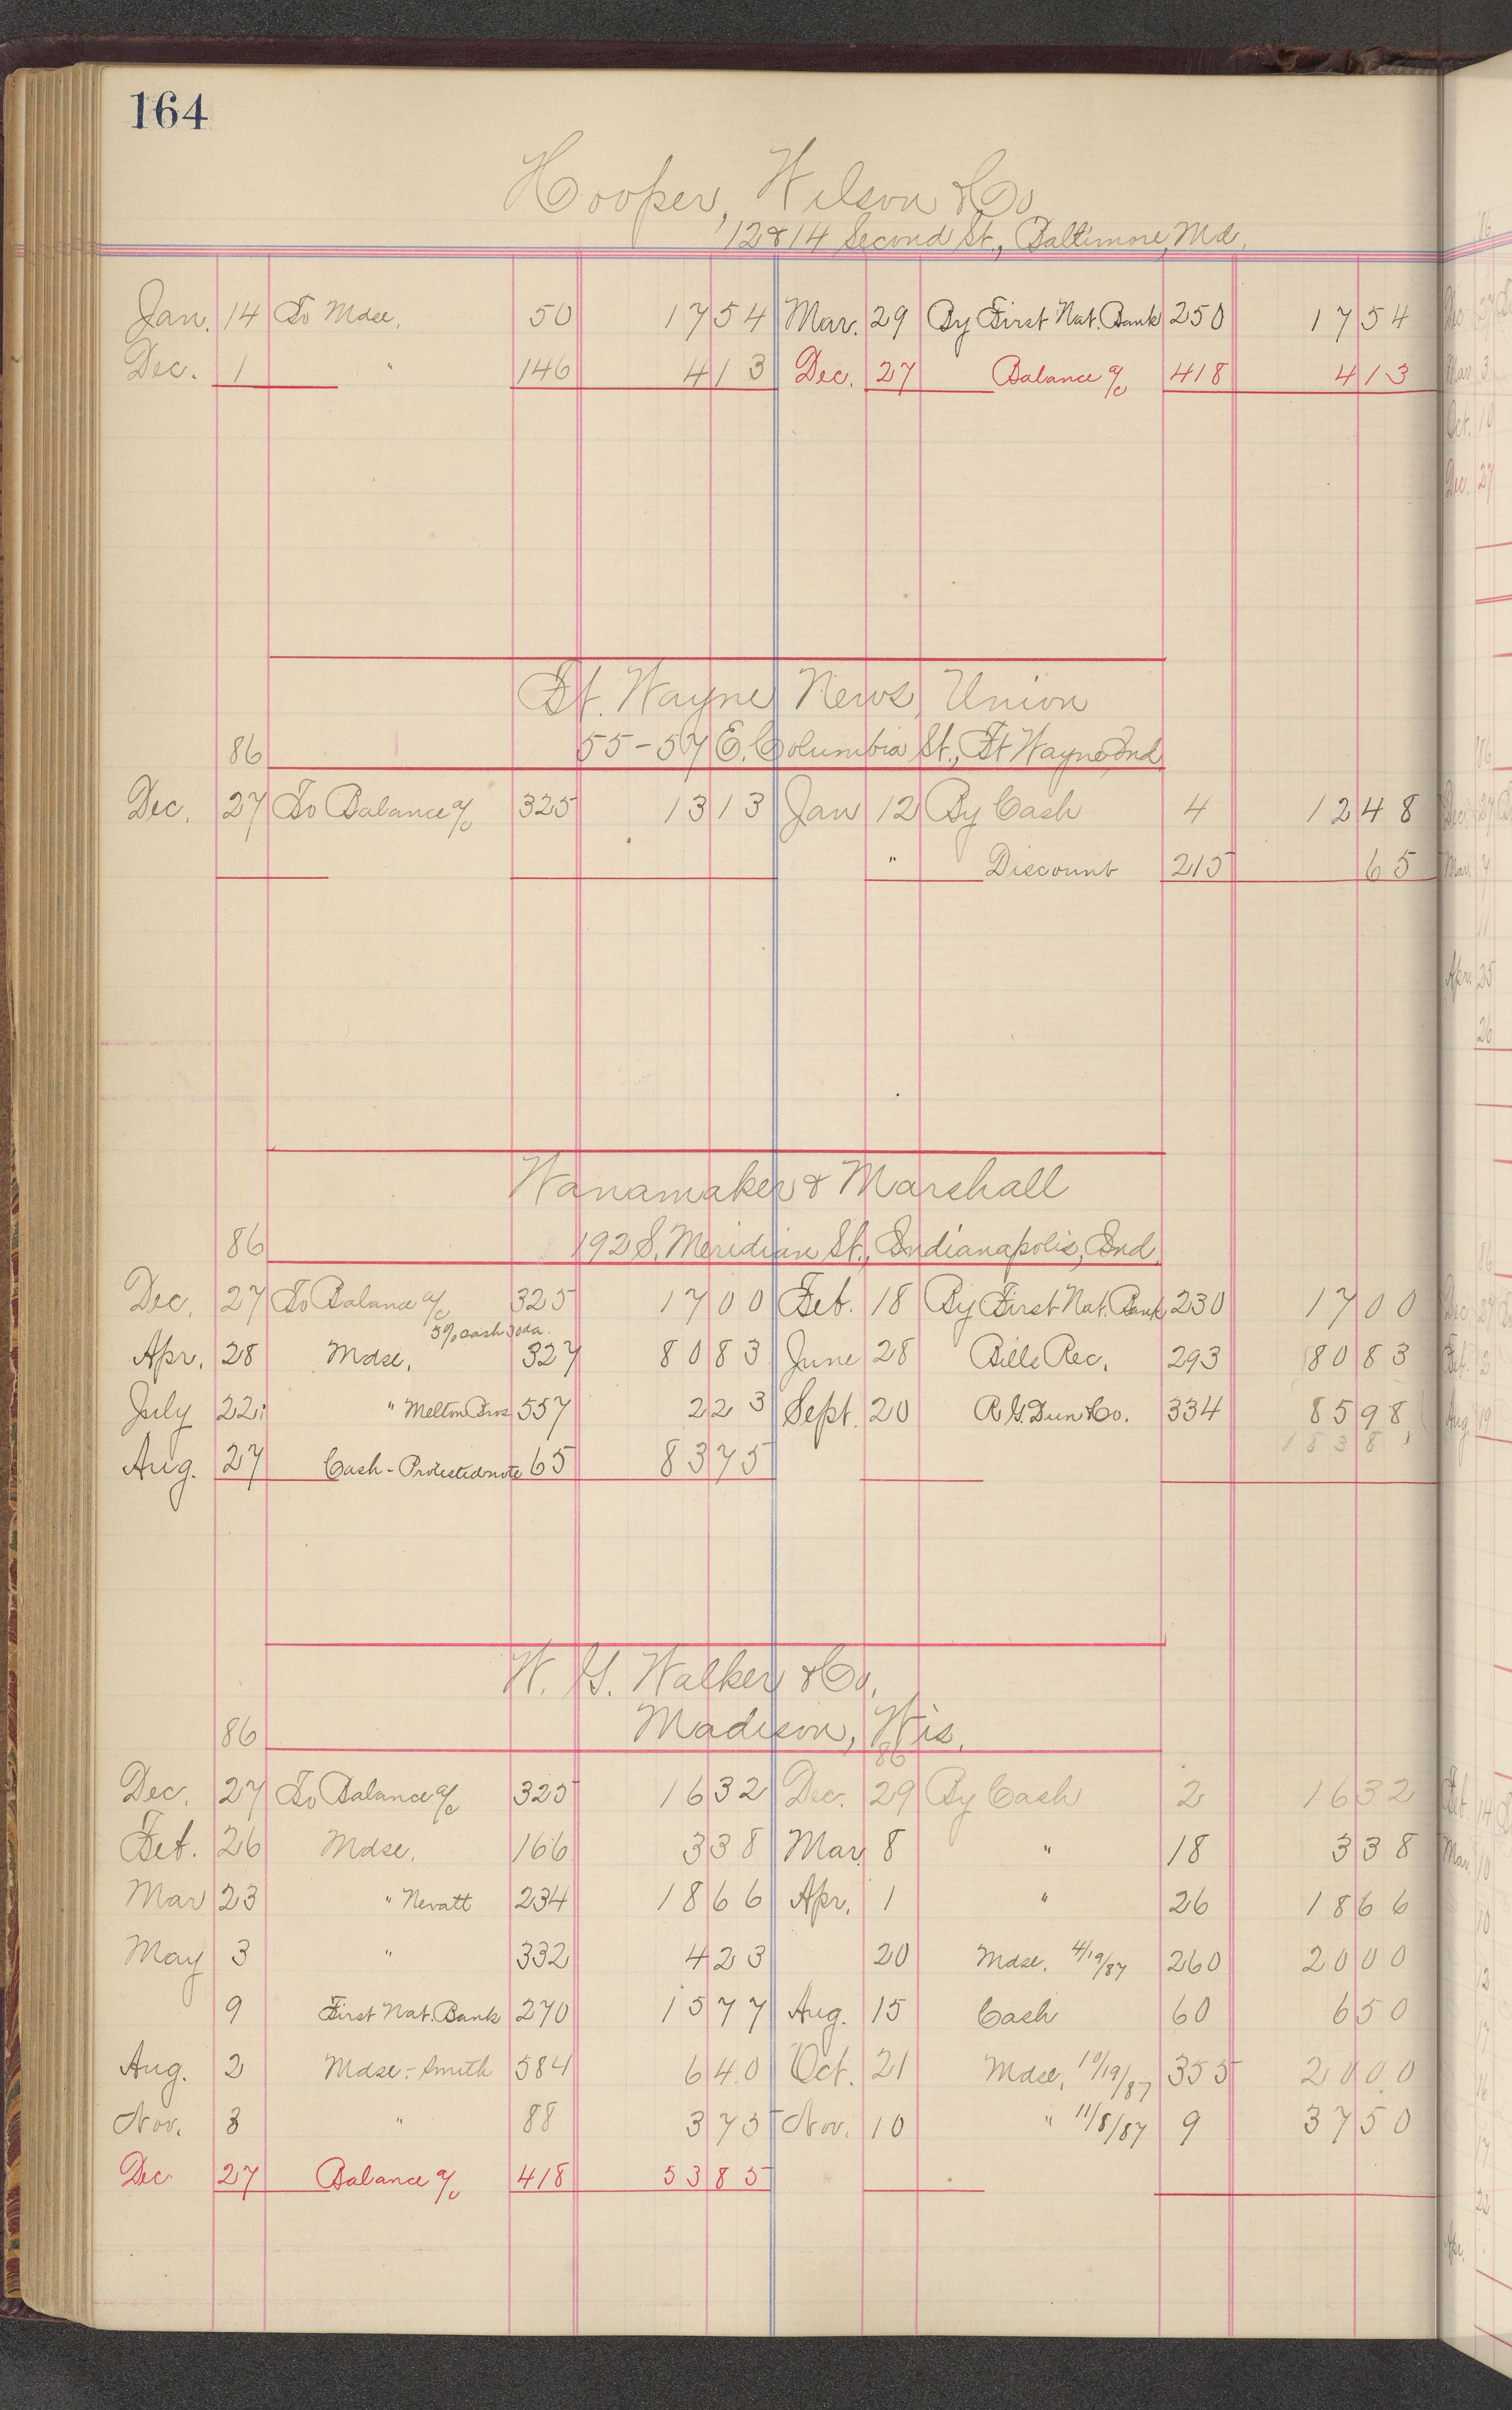 164
Hooper, Wilson & Co
12 & 14 Second St., Baltimore, Md.
Jan. 14 To Mdse. 50 17 54 Mar. 29 By First Nat. Bank 250 17 54
Dec. 1 " 146 4 13 Dec. 27 Balance a/c 418 4 13
Ft. Wayne News Union
86 55-57 E. Columbia St., Ft Wayne Ind
Dec. 27 To Balance a/c 325 13 13 Jan 12 By Cash 4 12 48
" Discount 215 65
Wanamaker & Marshall
86 192 S. Meridian St., Indianapolis, Ind.
Dec. 27 To Balance a/c 325 17 00 Feb. 18 By First Nat. Bank 230 17 00
5% cash 30 da.
Apr. 28 Mdse. 327 80 83 June 28 Bills Rec. 293 80 83
July 22 " Melton Bros 557 2 23 Sept. 20 R. G. Dun & Co. 334 85 98
Aug. 27 Cash - Protested note 65 83 75
W. G. Walker & Co.
86 Madison, Wis.
86
Dec. 27 To Balance a/c 325 16 32 Dec. 29 By Cash 2 16 32
Feb. 26 Mdse. 166 3 38 Mar. 8 " 18 3 38
Mar 23 " Nevatt 234 18 66 Apr. 1 " 26 18 66
May 3 " 332 4 23 20 Mdse. 4/19/87 260 20 00
9 First Nat. Bank 270 15 77 Aug. 15 Cash 60 6 50
Aug. 2 Mdse - Smith 584 6 40 Oct. 21 Mdse. 10/19/87 355 20 00
Nov. 3 " 88 3 75 Nov. 10 " 11/8/87 9 37 50
Dec 27 Balance a/c 418 53 85